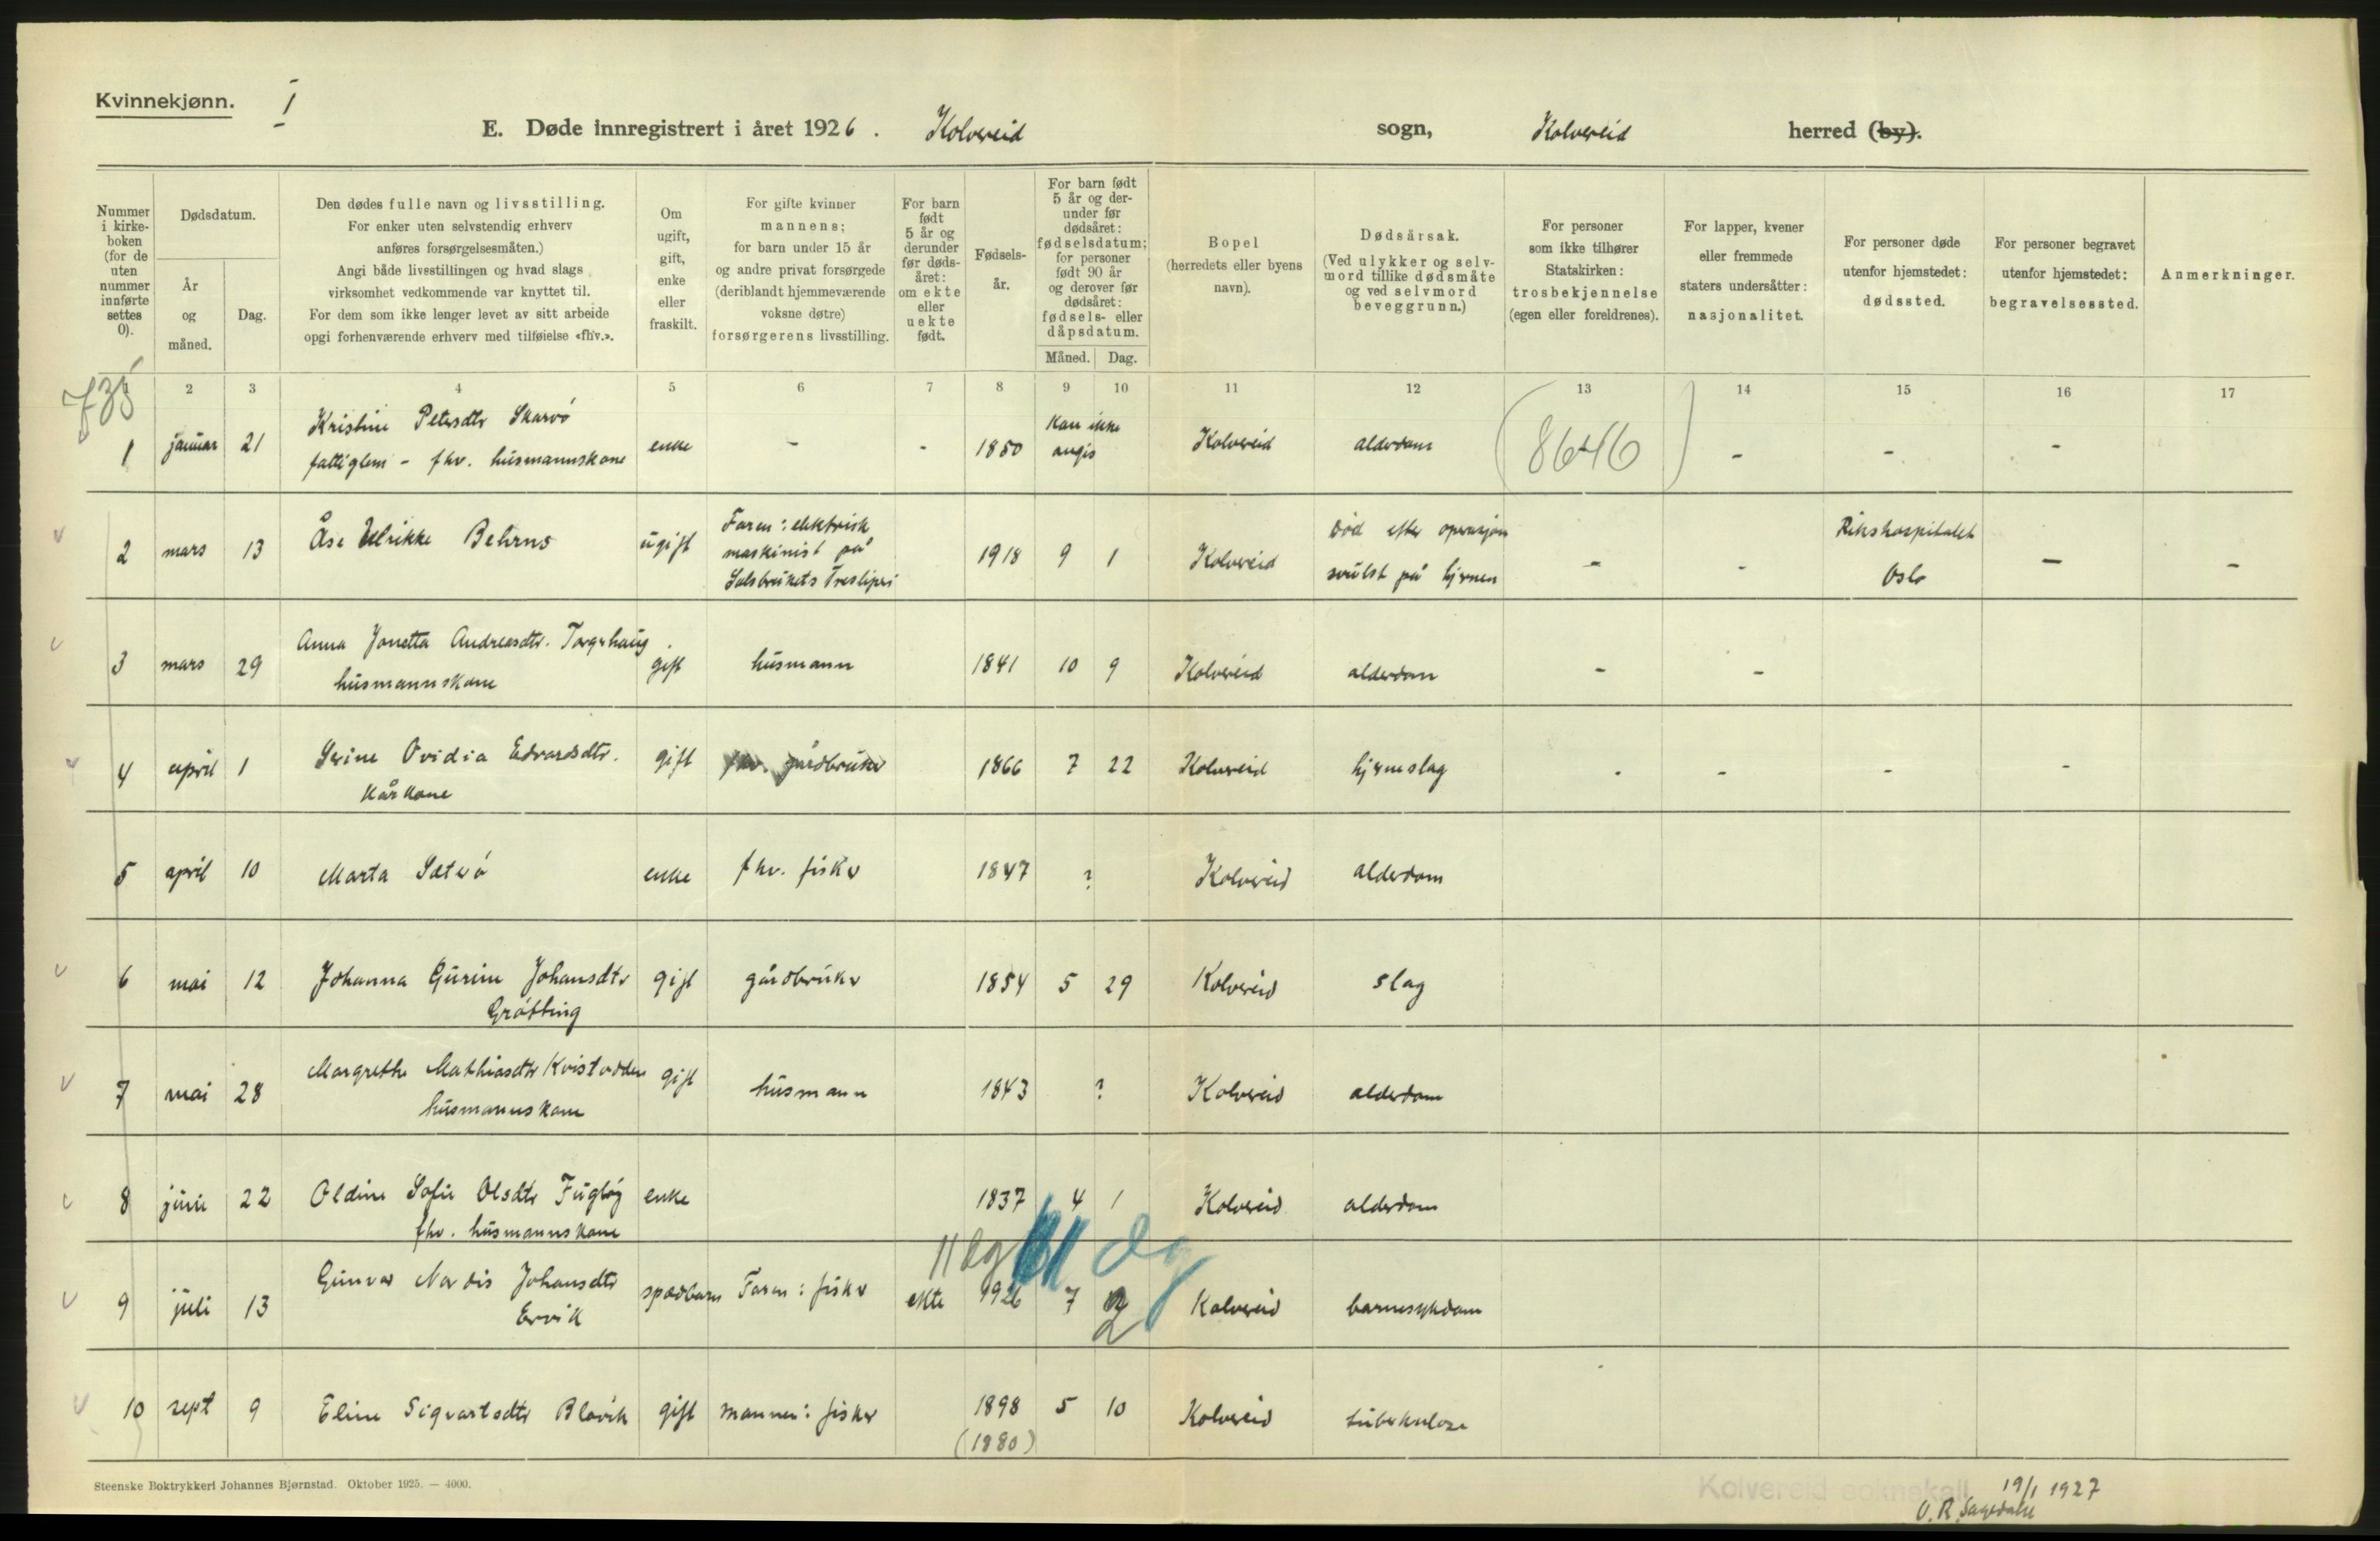 Kvinnekjønn. I
E. Døde innregistrert i året 1926. Kolvereid sogn, Kolvereid herred (by).
Nummer i kirke-boken (for de uten nummer innførte settes 0).
Dødsdatum.
År og måned.
Dag.
Den dødes fulle navn og livsstilling.
For enker uten selvstendig erhverv
anføres forsørgelsesmåten.)
Angi både livsstillingen og hvad slags
virksomhet vedkommende var knyttet til.
For dem som ikke lenger levet av sitt arbeide
opgi forhenværende erhverv med tilføielse «fhv.».
Om ugift, gift, enke eller fraskilt.
For gifte kvinner
mannens;
for barn under 15 år
og andre privat forsørgede
(deriblandt hjemmeværende
voksne døtre)
forsørgerens livsstilling.
For barn født 5 år og derunder før døds-året: om ekte eller uekte født.
Fødsels-år.
For barn født
5 år og der-
under før
dødsåret:
fødselsdatum;
for personer
født 90 år
og derover før
dødsåret:
fødsels- eller
dåpsdatum.
Måned. Dag.
Bopel
(herredets eller byens
navn).
Dødsårsak.
(Ved ulykker og selv-
mord tillike dødsmåte
og ved selvmord
beveggrunn.)
For personer
som ikke tilhører
Statskirken:
trosbekjennelse
(egen eller foreldrenes).
For lapper, kvener
eller fremmede
staters undersåtter:
nasjonalitet.
For personer døde
utenfor hjemstedet:
dødssted.
For personer begravet
utenfor hjemstedet:
begravelsessted.
Anmerkninger.
1 2 3 4 5 6 7 8 9 10 11 12 13 14 15 16 17
735
1 januar 21 Kristine Petersdtr Skarvö enke - - 1850 Kan ikke Kolvereid alderdom (8646) - - -
fattiglem - fhv. husmannskone angis
2 mars 13 Åse Ulrikke Behrns ugift Faren: elektrisk 1918 9 1 Kolvereid Död efter operasjon - - Rikshospitalet - -
maskinist på svulst på hjernen Oslo
Salsbrukets Tresliperi
3 mars 29 Anna Jonetta Andreasdtr. Torgerhaug gift husmann 1841 10 9 Kolvereid alderdom - -
husmannskone
4 april 1 Serine Ovidia Edvardsdtr. gift fhv. gårdbruker 1866 7 22 Kolvereid hjerneslag - - - -
kårkone
5 april 10 Marta Säterö enke fhv. fisker 1847 ? Kolvereid alderdom
6 mai 12 Johanna Gurine Johansdtr gift gårdbruker 1854 5 29 Kolvereid slag
Grötting
7 mai 28 Margrethe Mathiasdtr Kvistodden gift husmann 1843 ? Kolvereid alderdom
husmannskone
8 juni 22 Oldine Sofie Olsdtr Fugløy enke 1837 4 1 Kolvereid alderdom
fhv. husmannskone
11 dg 11 dg
9 juli 13 Gunvor Nordis Johansdtr spædbarn Faren: fisker ekte 1926 7 2 Kolvereid barnesykdom
Ervik
10 sept 9 Eline Sigvartsdtr Blåvik gift mannen: fisker 1898 5 10 Kolvereid tuberkulose
(1880)
Steenske Boktrykkeri Johannes Bjørnstad. Oktober 1925. — 4000.
Kolvereid soknekall 19/1 1927